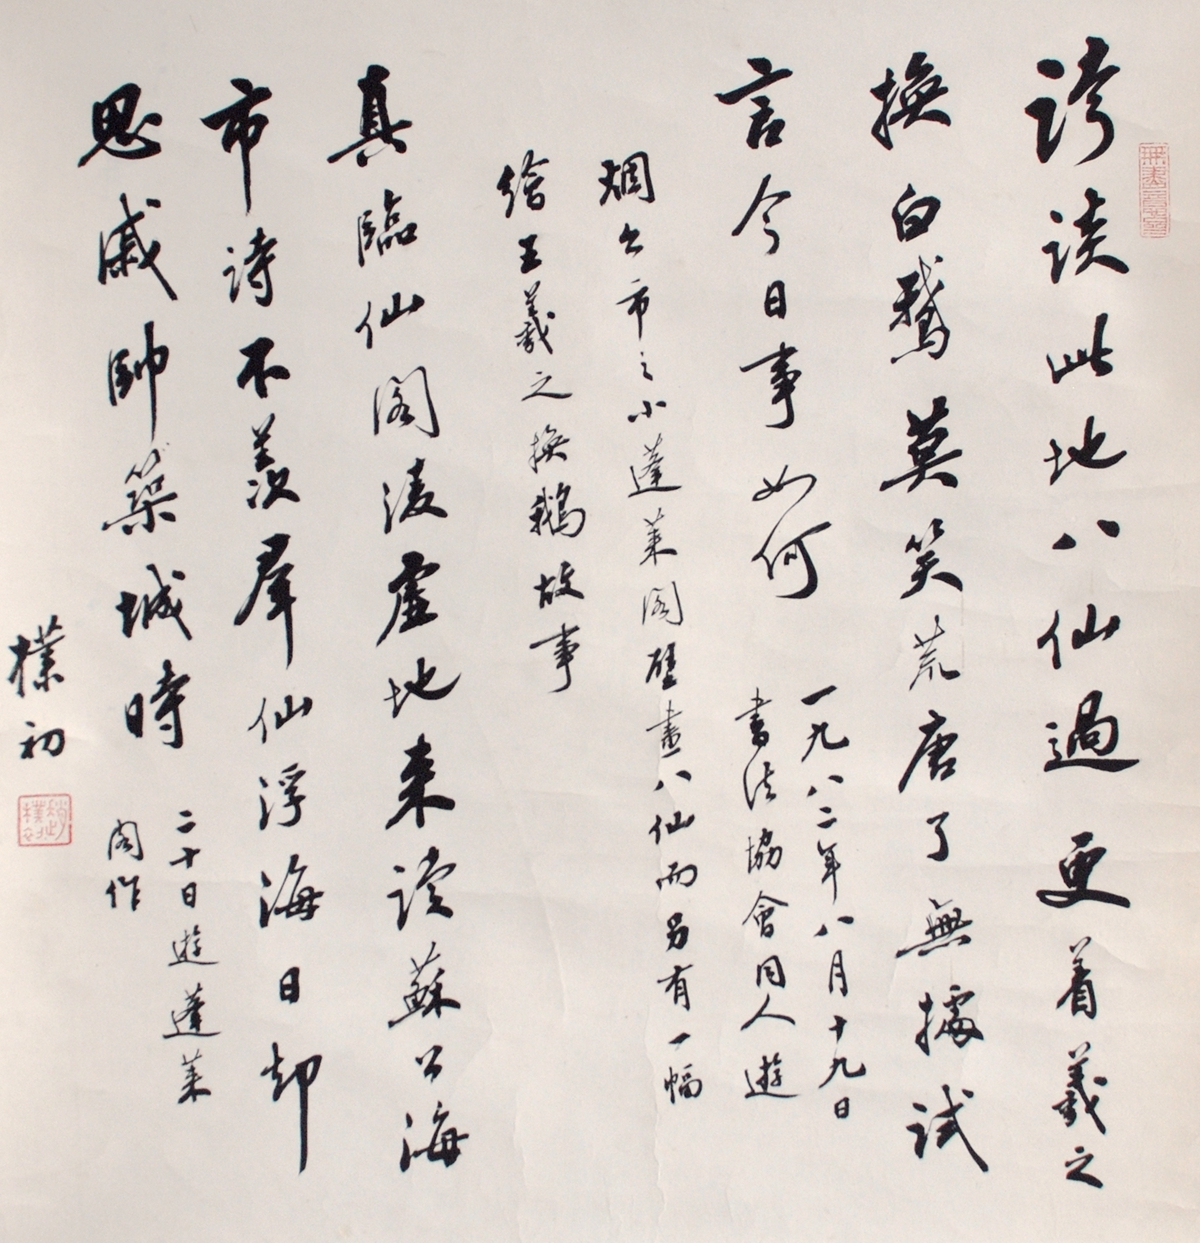 誇談此地八仙過更着羲之
換白鵝莫笑荒唐了無據試
言今日事如何
一九八二年八月十九日
書法協會同人遊
烟台市之小蓬莱阁壁畫八仙而另有一幅
繪王羲之換鵝故事
真臨仙阁凌虚地来读蘇公海
市诗不羡群仙浮海日却
思戚帥築城時
二十日遊蓬莱
阁作
樸初
趙樸初